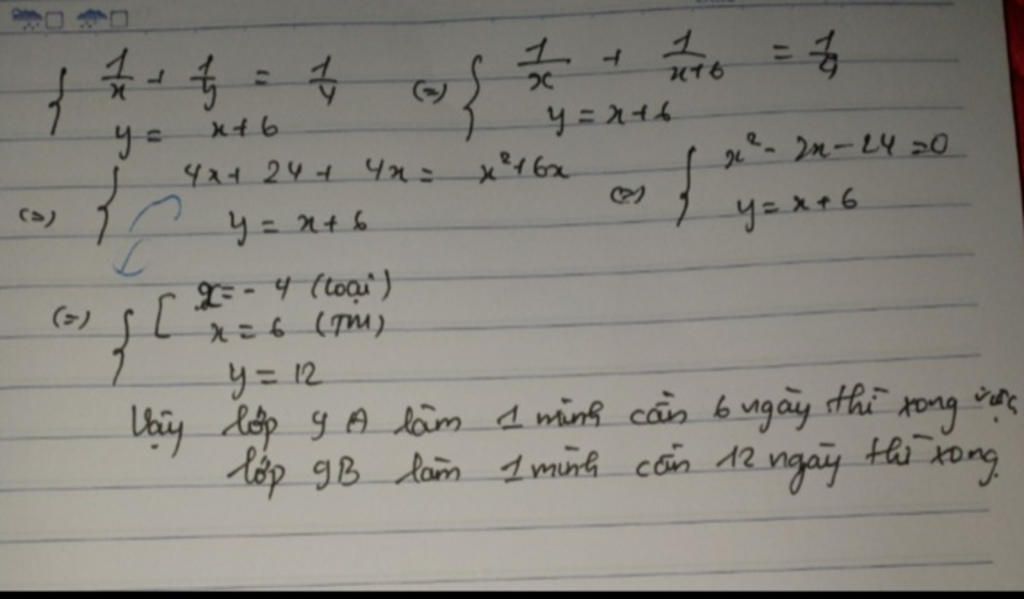 { 1/x + 1/y = 1/4 (=) { 1/x + 1/x+6 = 1/4
y = x+6 y = x+6
(=) { 4x+ 24+ 4x = x²+6x (=) { x² - 2x - 24 = 0
y = x+6 y = x+6
(=) { [ x = - 4 (loại)
x = 6 (TM)
y = 12
Vậy lớp 9A làm 1 mình cần 6 ngày thì xong việc
lớp 9B làm 1 mình cần 12 ngày thì xong.